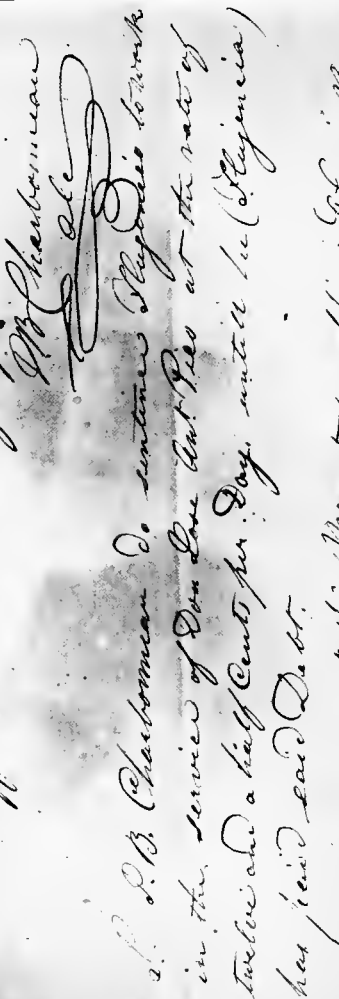 J B Charbonneau
alc
I, J. B. Charbonneau do sentence Flugencio to work
in the service of Don Jose Ant. Pico at the rate of
twelve and a half Cents per Day. untill he (Flugencia)
has paid said Debt.